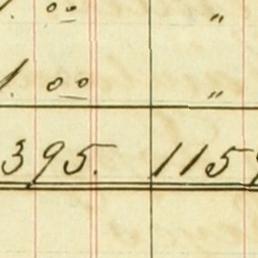 1.00 "
1.00 "
395. 115